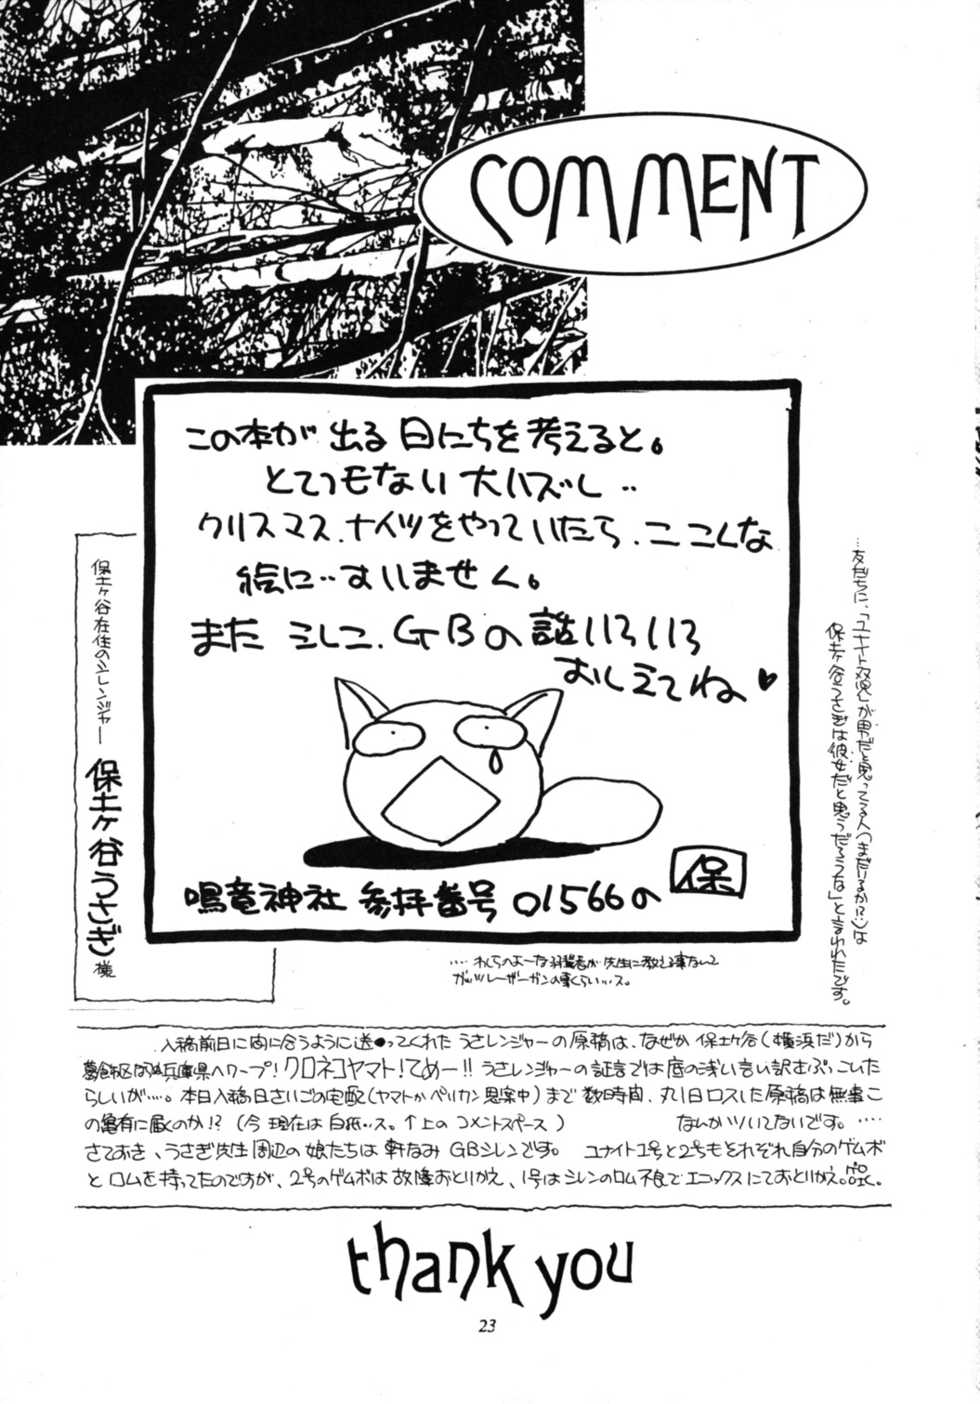 COMMENT
この本が出る日にちを考えると。
とてつもない大ハズレ…
クリスマス.ナイツをやっていたら、こ こんな
絵に…すいません。
また シレン、GBの話いろいろ
おしえてね♥
鳴竜神社 参拝番号 01566の 保
保土ヶ谷在住のシレンジャー
保土ヶ谷うさぎ様
…友だちに、「ユナイト双児」が男だと思ってる人(まだいるか!?)は
保土ヶ谷うさぎは彼女だと思うだろうな」と言われたです。
…わくらへよーな が先生に教える事ないして
ガッツレーザーガンの事くらい…ス。
入稿前日に間に合うように送ってくれた うさレンジャーの原稿は、なぜか 保土ヶ谷(横浜だ)から
葛飾区ならぬ兵庫県へワープ!クロネコヤマト!てめー!!うさレンジャーの証言では底の浅い言い訳をぶっこいたた
らしいが…。本日入稿日さいごの宅配(ヤマトかペリカン思案中)まで数時間、丸1日ロスした原稿は無事こ
の亀有に届くのか!?(今現在は白紙…ス。↑上のコメントスペース) なんかツいてないです。…
さておき、うさぎ先生周辺の娘たちは軒なみ GBシレンです。 ユナイト1号と2号もそれぞれ自分のゲムボ
とロムを持ってたのですが、2号のゲムボは故障おとりかえ、1号はシレンのロム不良でエニックスにておとりかえ。
thank you
23